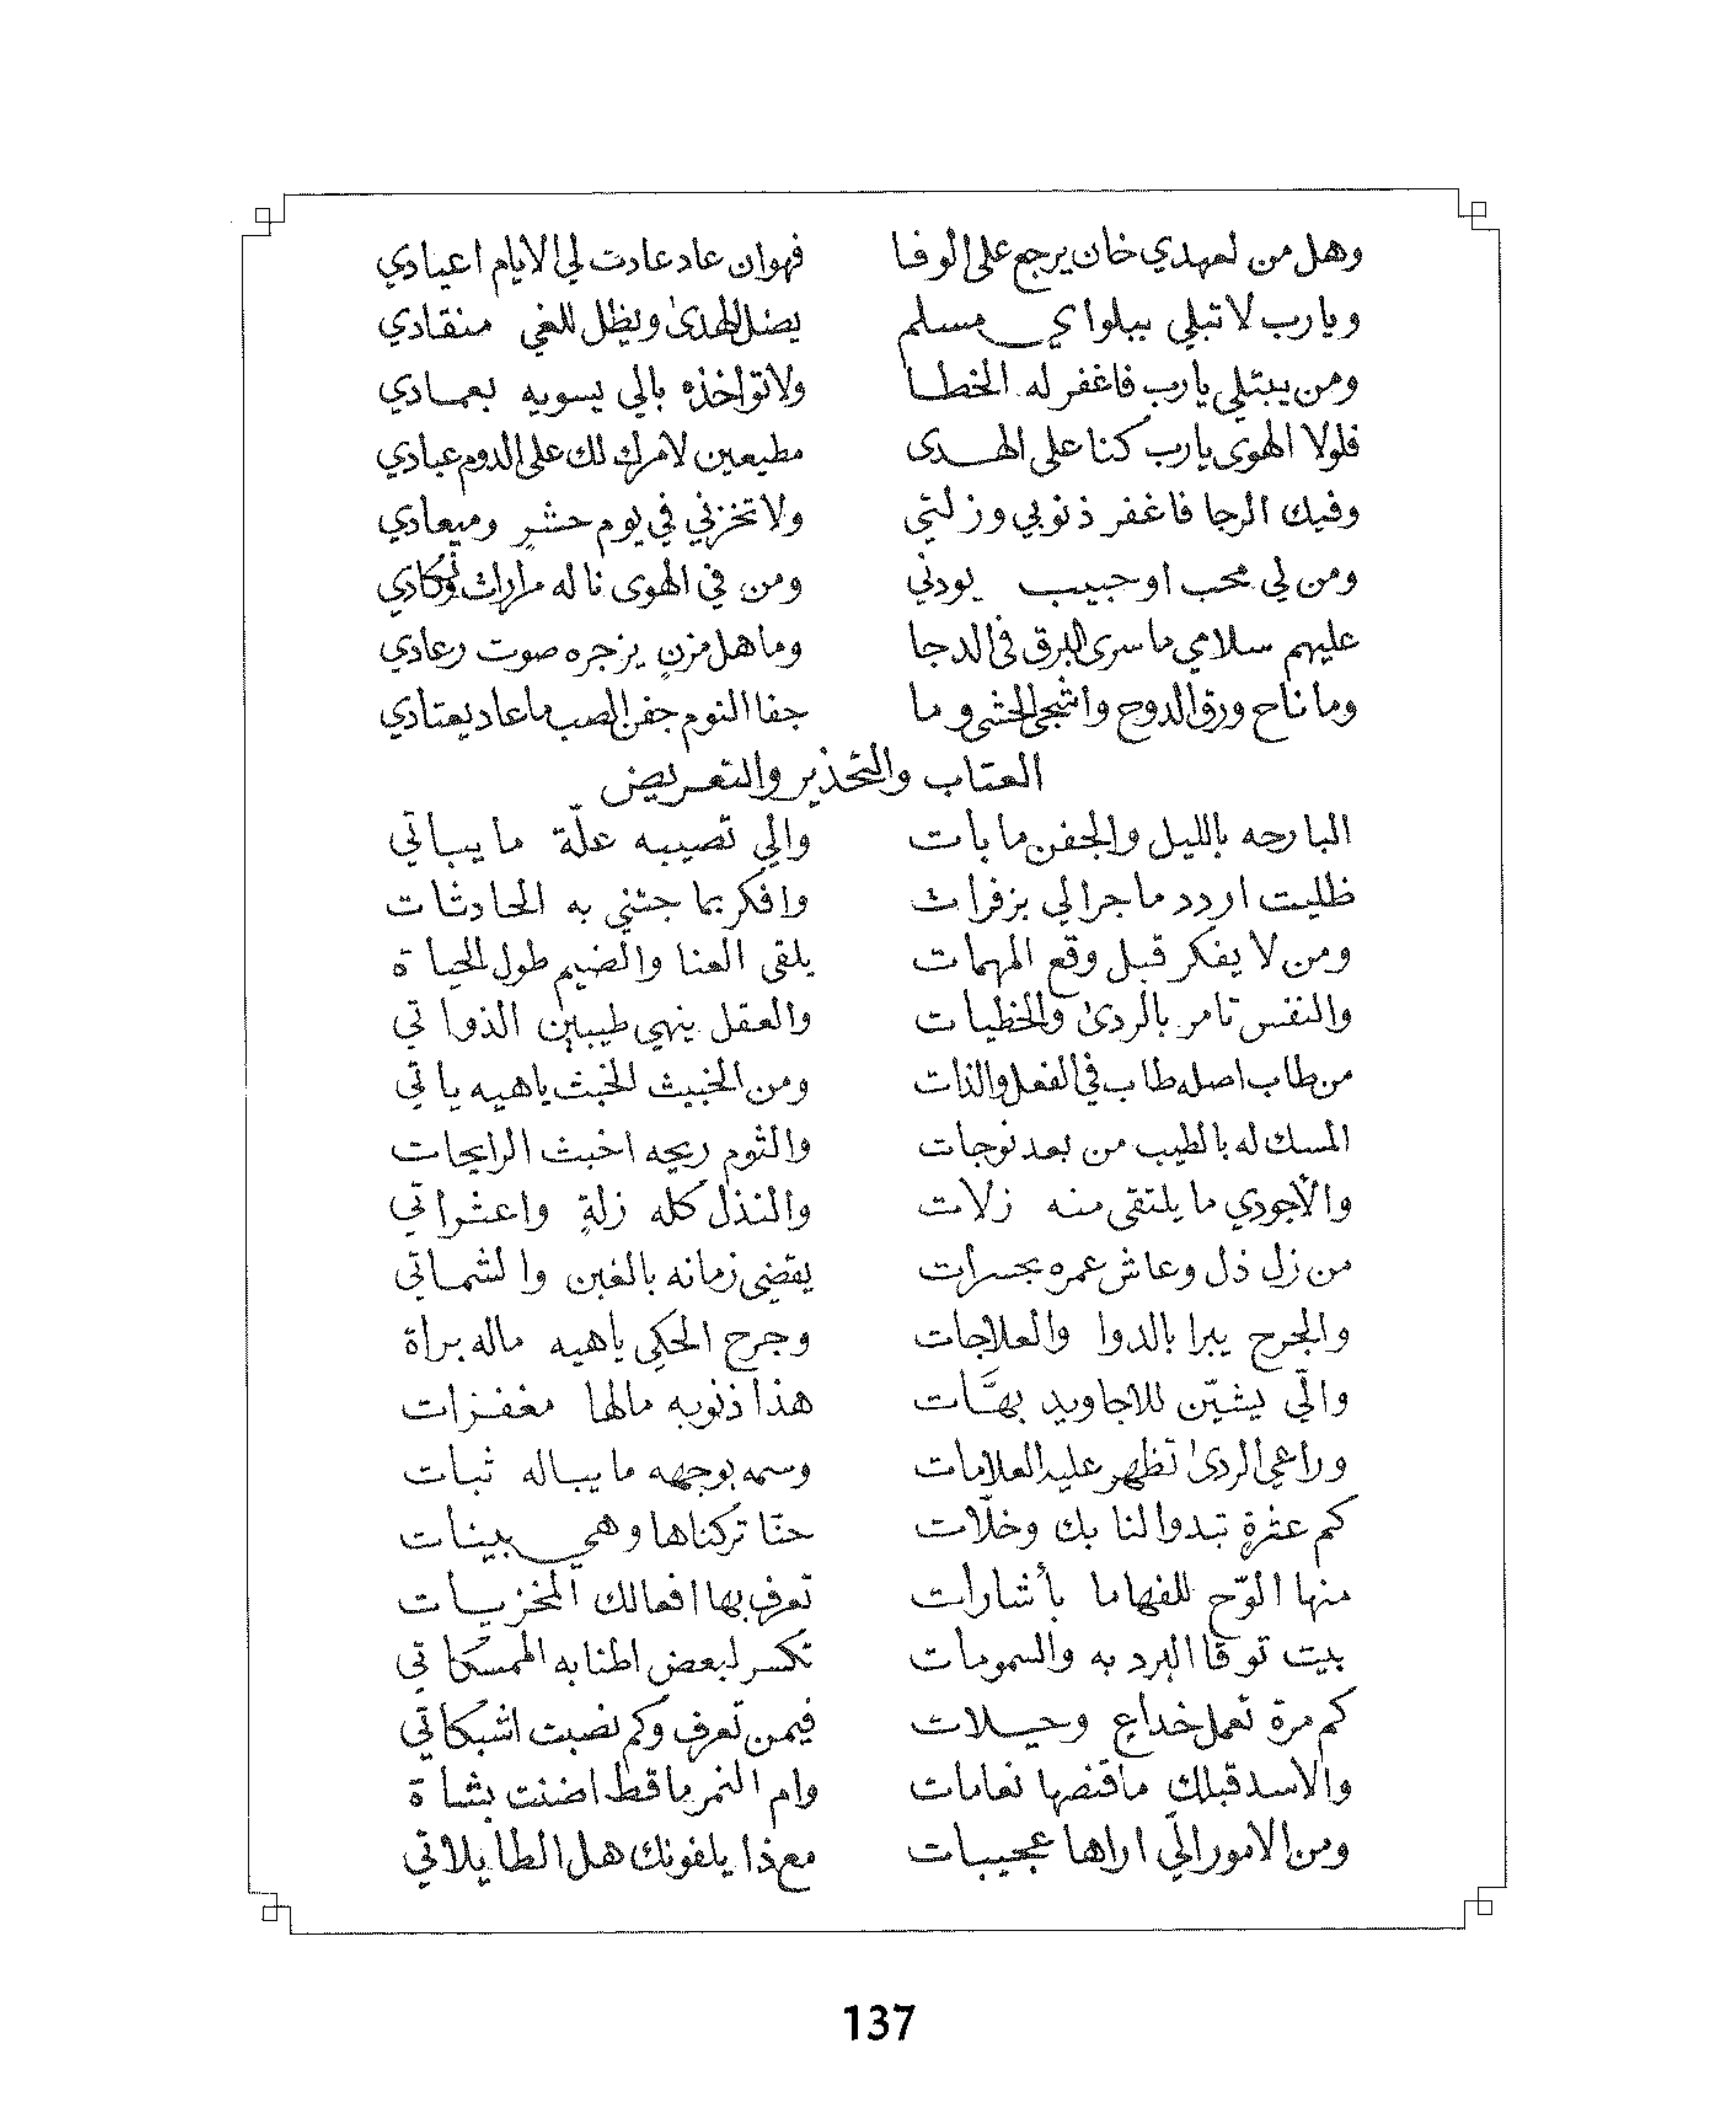 وهل من لعهدي خان يرجع على الوفا فهوان عاد عادت لي الايام اعيادي
ويارب لا تبلي ببلواي مسلم يضل الهدىٰ ويظل للغي منقادي
ومن يبتلي يارب فاغفر له الخطا ولا تواخذه بالي يسويه بعمادي
فلولا الهوى يارب كنا على الهدى مطيعين لامرك لك على الدوم عبادي
وفيك الرجا فاغفر ذنوبي وزلتي ولا تخزني في يوم حشرٍ وميعادي
ومن لي محب اوحبيب يودني ومن في الهوى ناله مرارات ونكادي
عليهم سلامي ما سرى البرق في الدجا وما هل مزنٍ يزجره صوت رعادي
وما ناح ورق الدوح واشجى الحشى وما جفا النوم جفن الصب ما عاد يعتادي
العتاب والتحذير والتعريض
البارحه بالليل والجفن ما بات والي تصيبه علّة ما يباتي
ظليت اردد ما جرالي بزفرات وافكر بما جتني به الحادثات
ومن لا يفكر قبل وقع المهمات يلقى العنا والضيم طول الحياة
والنفس تامر بالردىٰ والخطيات والعقل ينهي طيبين الذواتي
من طاب اصله طاب في الفعل والذات ومن الخبيث الخبث ياهيه ياتي
المسك له بالطيب من بعد نوجات والثوم ريحه اخبث الرايحات
والأجودي ما يلتقى منه زلات والنذل كله زلةٍ واعثراتي
من زل ذل وعاش عمره بحسرات يقضي زمانه بالغبن والشماتي
والجرح يبرا بالدوا والعلاجات وجرح الحكي ياهيه ماله براة
والّي يشيّن للاجاويد بهَّات هذا ذنوبه مالها مغفرات
وراعي الردىٰ تظهر عليه العلامات وسمه بوجهه ما يباله ثبات
كم عثرةٍ تبدوا لنا بك وخلّات حنّا تركناها وهي بينات
منها الوّح للفهاما بأشارات تعرف بها افعالك المخزيات
بيت توقا البرد به والسمومات تكسر لبعض اطنابه الممسكاتي
كم مرة تعمل خداعٍ وحيلات فيمن تعرف وكم نصبت اشبكاتي
والاسد قبلك ما قنصها نعامات وام النمر ما قط اضنت بشاة
ومن الامور الّي اراها عجيبات مع ذا يلفونك هل الطايلاتي
137